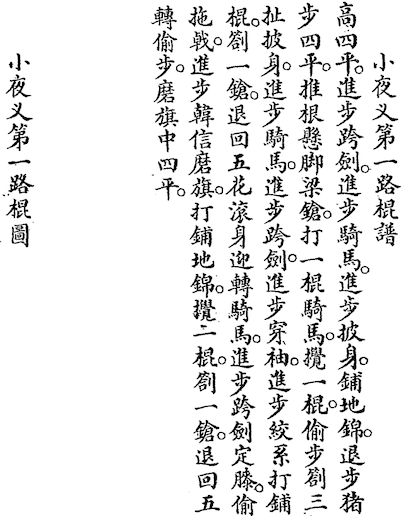 小夜义第一路棍譜
高四平。進步跨劍。進步騎馬。進步披身。鋪地錦。退步猪
步四平。推根懸脚梁鎗。打一棍騎馬。攪一棍。偷步劄三
扯披身。進步騎馬。進步跨劍。進步穿袖。進步絞系打鋪
棍。劄一鎗。退回五花滾身迎轉騎馬。進步跨劍定膝。偷
拖戟。進步韓信磨旗。打鋪地錦。攪二棍。劄一鎗。退回五
轉偷步。磨旗中四平。
小夜义第一路棍圖